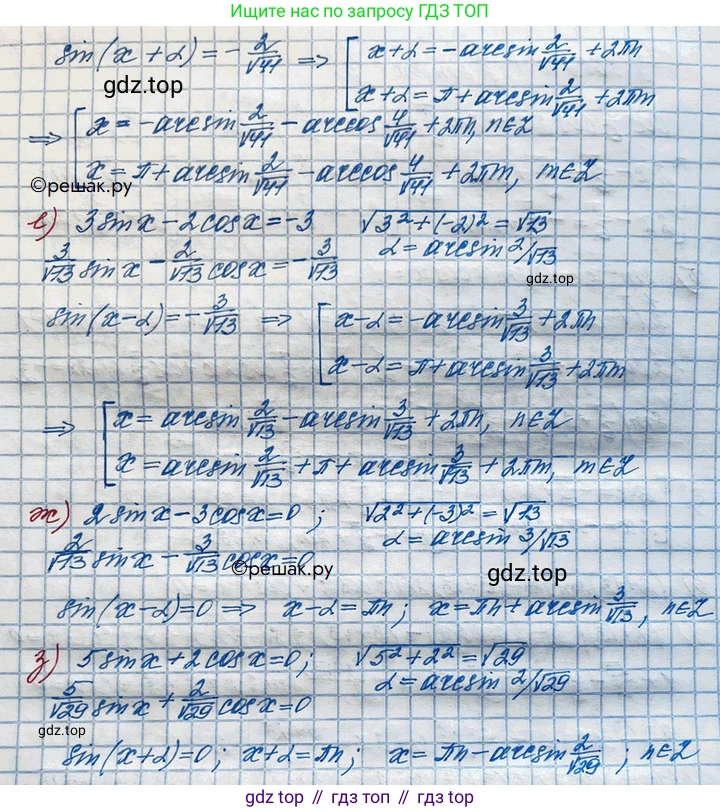 Ищите нас по запросу ГДЗ ТОП
sin(x+α) = -2/√41 => [ x+α = -arcsin 2/√41 + 2πn
x+α = π + arcsin 2/√41 + 2πm
gdz.top
=> [ x = -arcsin 2/√41 - arccos 4/√41 + 2πn, n∈Z
x = π + arcsin 2/√41 - arccos 4/√41 + 2πm, m∈Z
©решак.ру
е) 3 sin x - 2 cos x = -3 √3²+(-2)² = √13
3/√13 sin x - 2/√13 cos x = -3/√13 α = arcsin 2/√13
gdz.top
sin(x-α) = -3/√13 => [ x-α = -arcsin 3/√13 + 2πn
x-α = π + arcsin 3/√13 + 2πm
=> [ x = arcsin 2/√13 - arcsin 3/√13 + 2πn, n∈Z
x = arcsin 2/√13 + π + arcsin 3/√13 + 2πm, m∈Z
ж) 2 sin x - 3 cos x = 0 ; √2²+(-3)² = √13
2/√13 sin x - 3/√13 cos x = 0 α = arcsin 3/√13
©решак.ру
gdz.top
sin(x-α) = 0 => x-α = πn; x = πn + arcsin 3/√13, n∈Z
з) 5 sin x + 2 cos x = 0; √5²+2² = √29
5/√29 sin x + 2/√29 cos x = 0 α = arcsin 2/√29
gdz.top
sin(x+α) = 0; x+α = πn; x = πn - arcsin 2/√29 ; n∈Z
gdz top // гдз топ // gdz.top